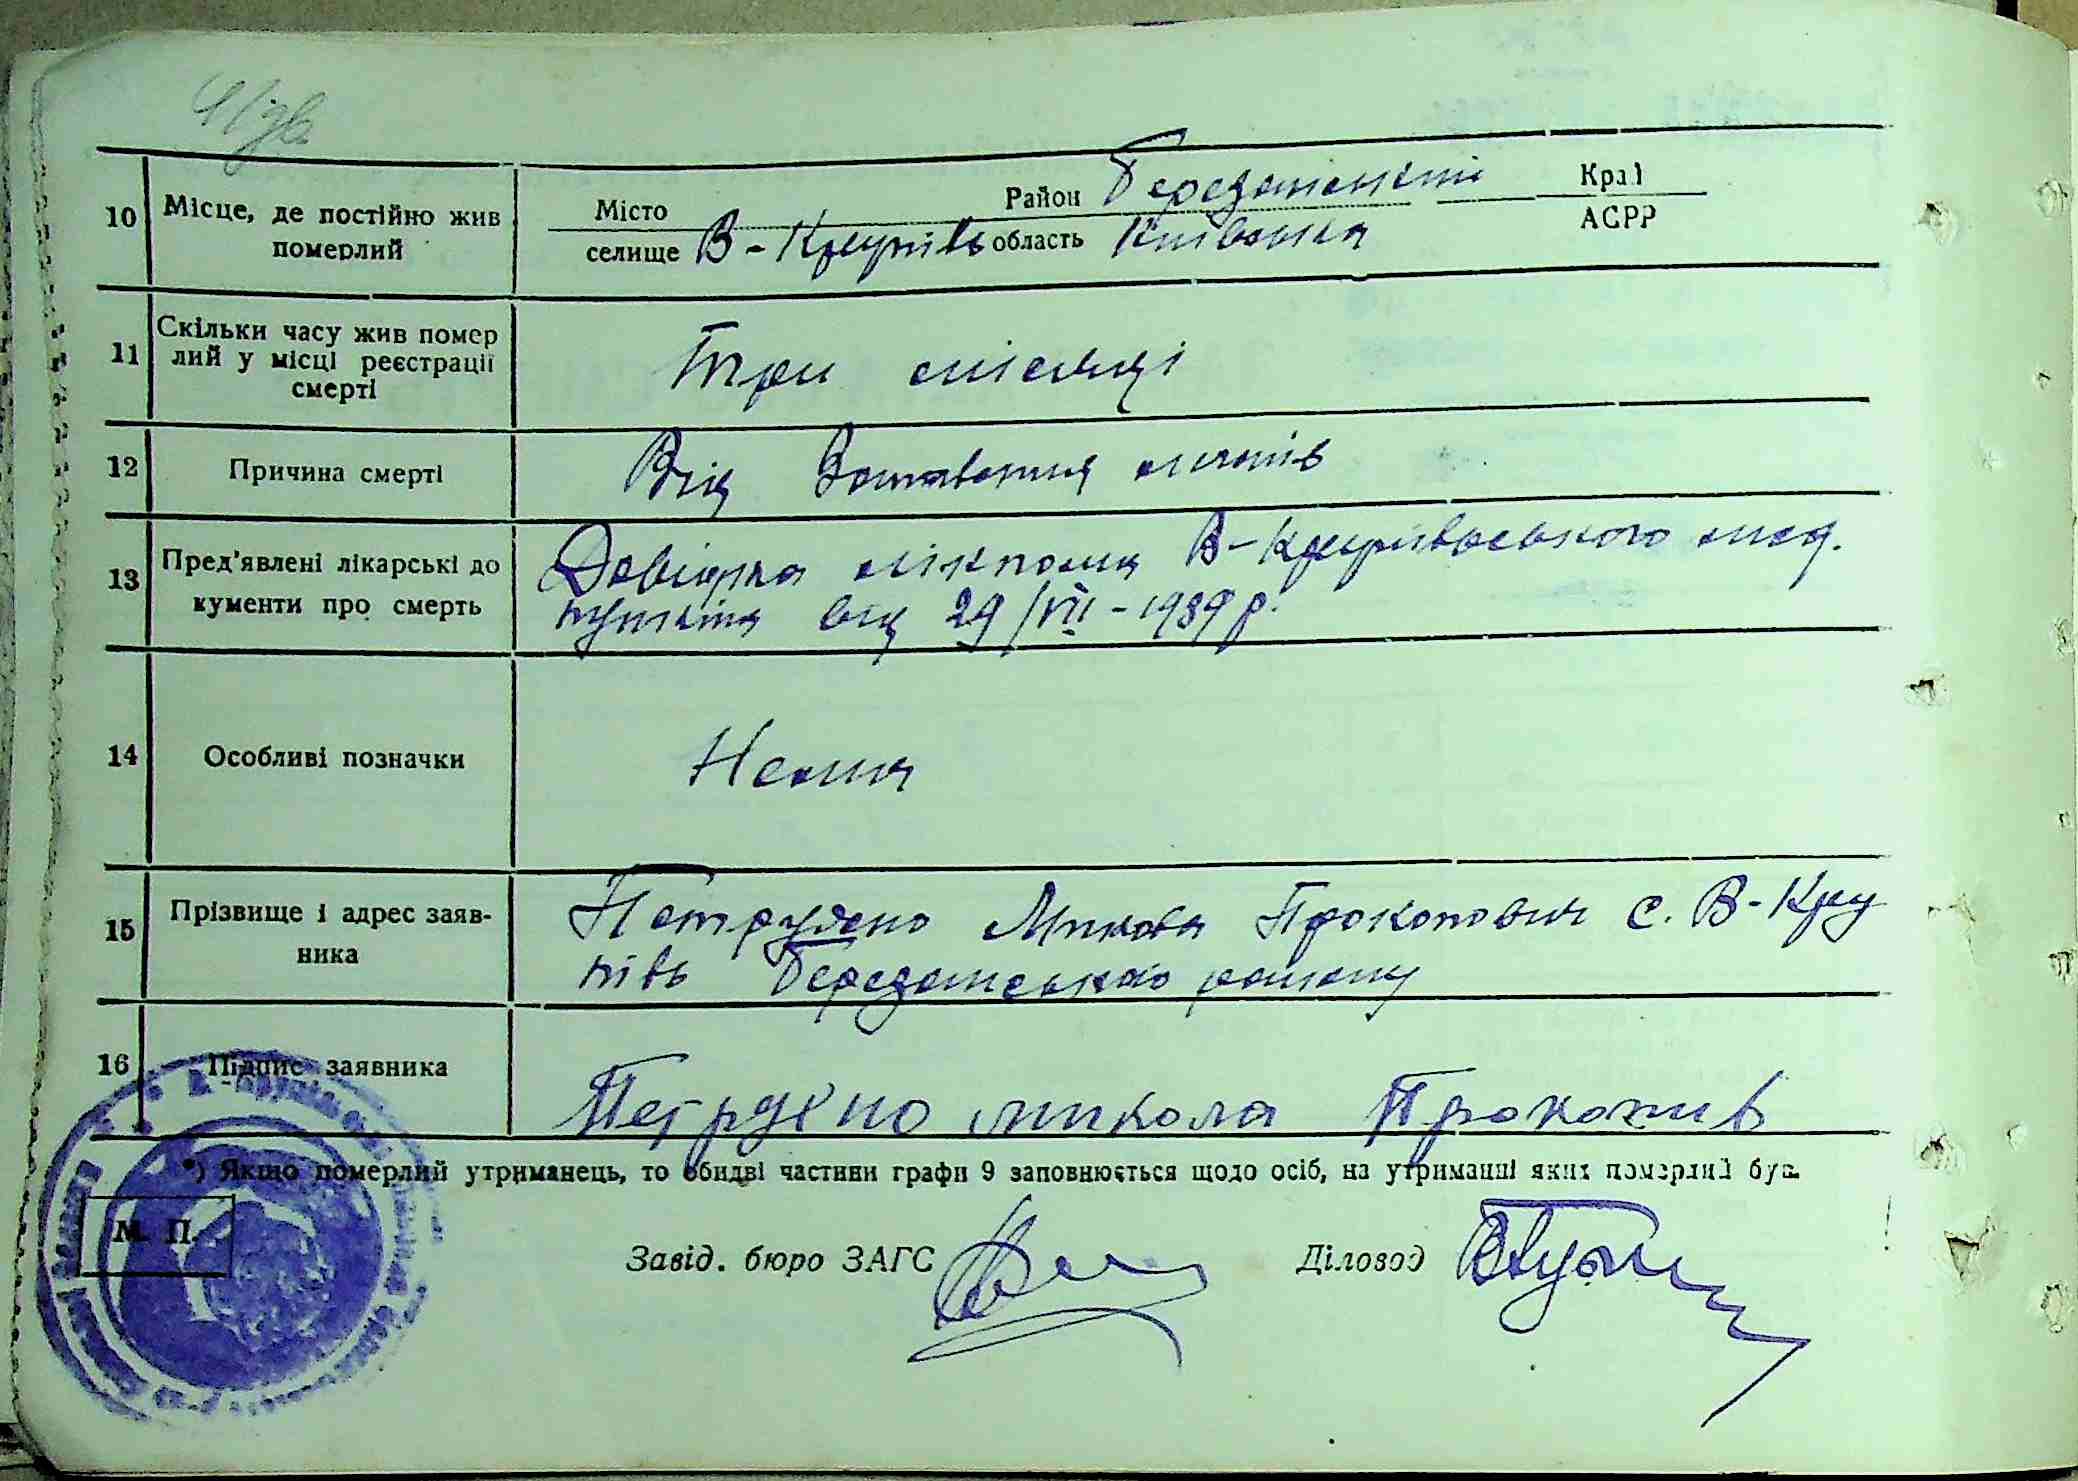 10 Місце, де постійно жив померлий
Місто
Район Березанський
Край
селище В-Крупіль область Київська
АСРР
11 Скільки часу жив помер
лий у місці реєстрації
смерті
Три місяці
12 Причина смерті
Від
13 Пред’явлені лікарські до
кументи про смерть
Довідка лікпома В-Крупільського мед.
пункта від 29/VII-1939 р.
14 Особливі позначки
Нема
15 Прізвище і адрес заяв-
ника
Микола Прокопович с. В-Кру
піль Березанського району
16 Підпис заявника
Микола Прокопив
*) Якщо померлий утриманець, то обидві частини графи 9 заповнюється щодо осіб, на утриманні яких померлий був.
М. П.
Завід. бюро ЗАГС
Діловод